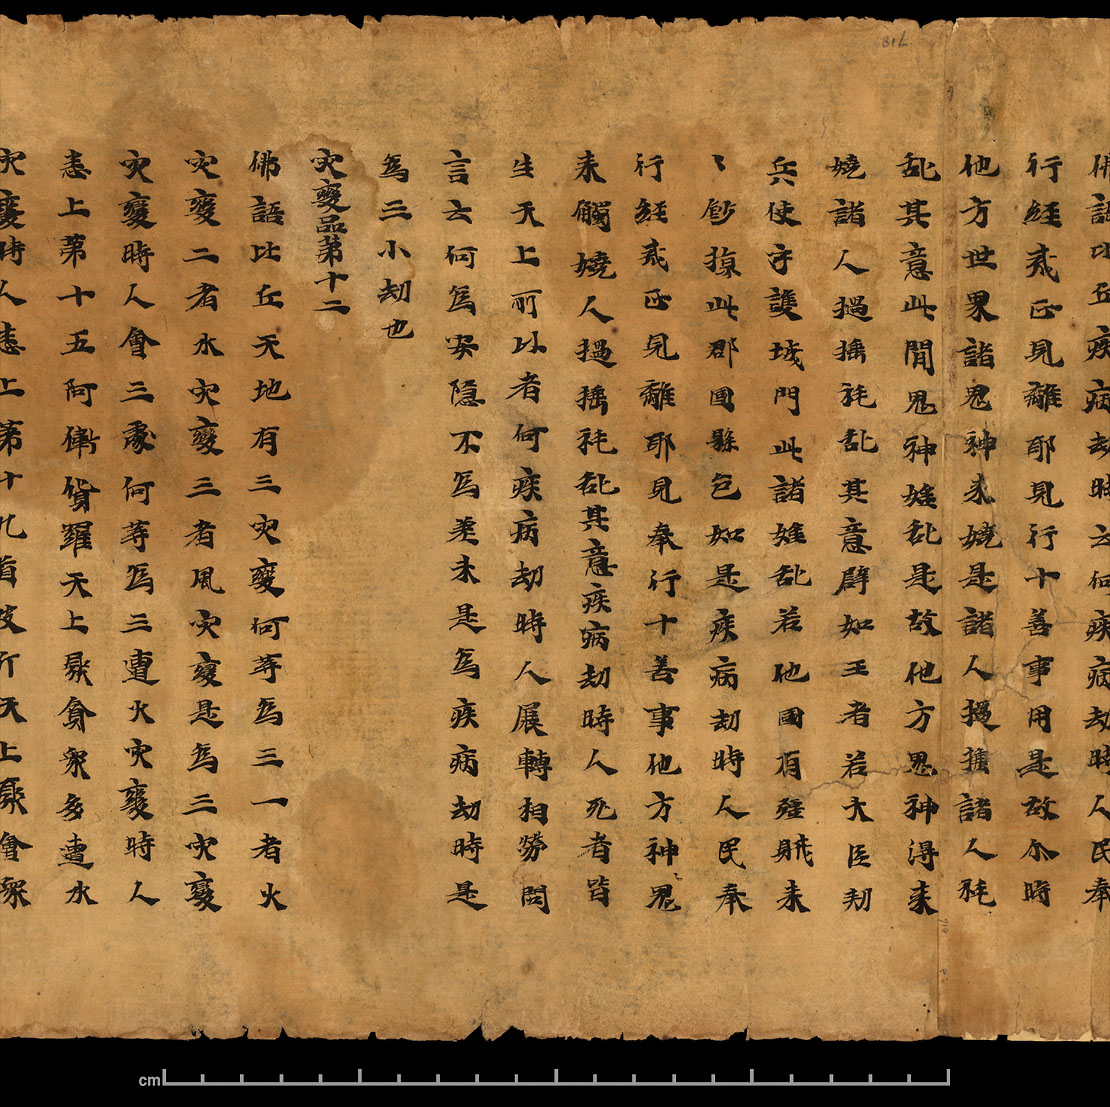 佛語比丘疾病劫時云何疾病劫時人民奉
行經戒正見離耶見行十善事用是故尒時
他方世界諸鬼神来嬈是諸人撾捶諸人秏
乱其意此間鬼神婬乱是故他方鬼神得来
嬈諸人撾捶秏乱其意譬如王者若大臣勑
兵使守護城門此諸婬乱若他國有強賊来
〻鈔掠此郡國縣邑如是疾病劫時人民奉
行經戒正見離耶見奉行十善事他方神鬼
来觸嬈人撾捶秏乱其意疾病劫時人死者皆
生天上所以者何疾病劫時人展轉相勞問
言云何為安隱不為差未是為疾病劫時是
為三小劫也
灾變品第十二
佛語比丘天地有三灾變何等為三一者火
灾變二者水灾變三者風灾變是為三灾變
灾變時人會三處何等為三遭火灾變時人
悉上第十五阿衛貨羅天上聚貟衆多遭水
灾變時人悉上第十九首皮斤天上聚會衆
cm